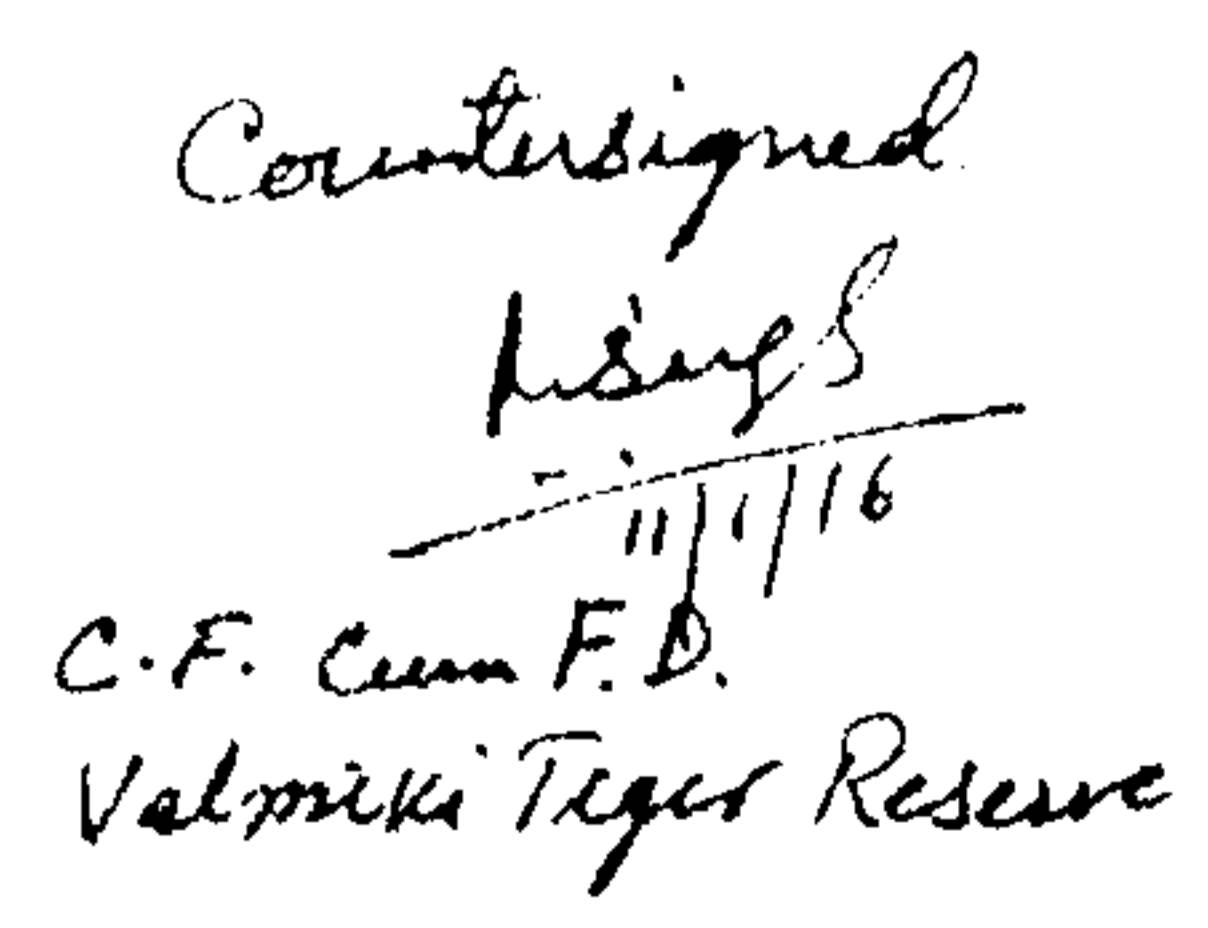 Countersigned
11/1/16
C.F. Cum F.D.
Valmiki Tiger Reserve